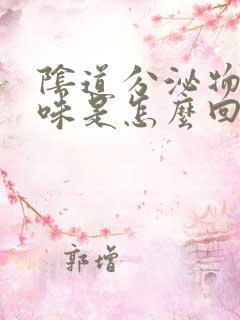 陰道分泌物
味是怎麼回
郭增